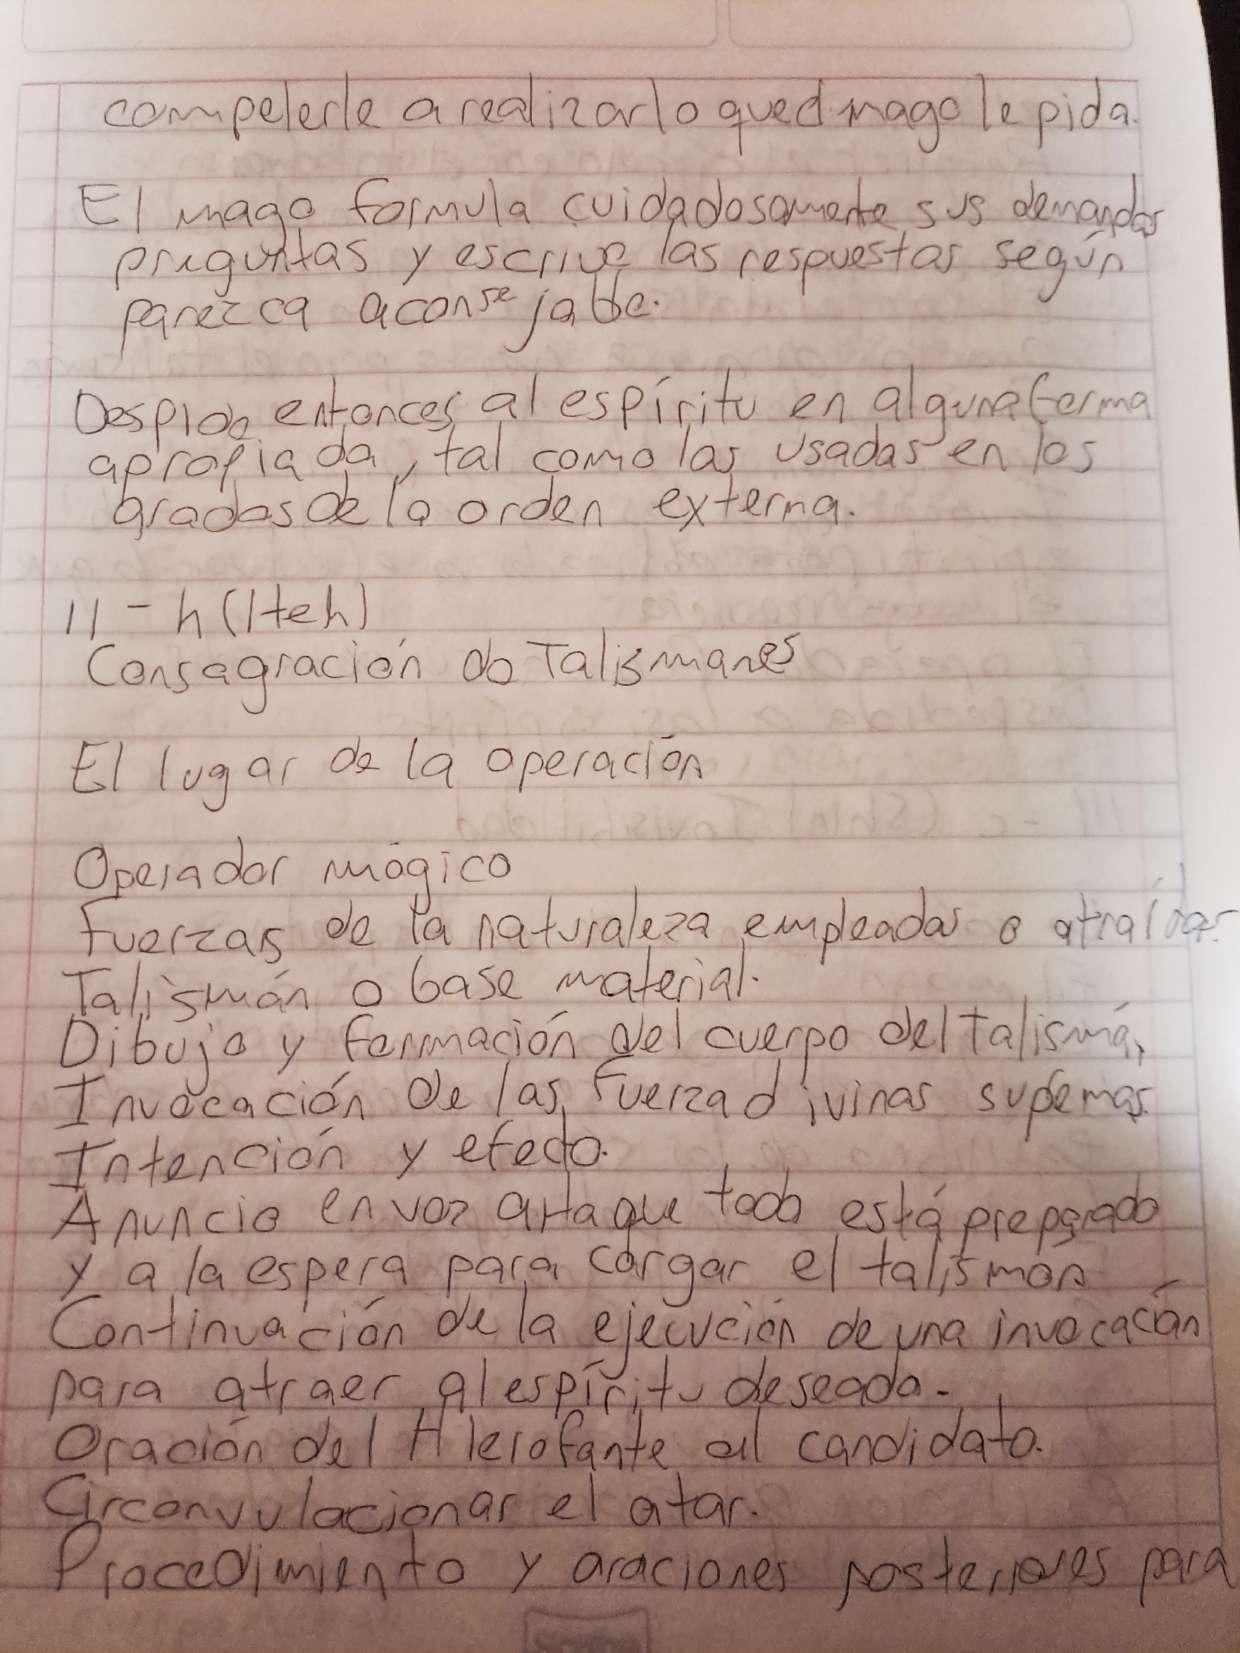 compelerle a realizar lo que el mago le pida.
El mago formula cuidadosamente sus demandas
preguntas y escrive las respuestas según
parezca aconsejable.
entonces al espíritu en alguna forma
apropiada, tal como las usadas en los
grados de la orden externa.
11 - h (Heh)
Consagración de Talismanes
El lugar de la operación
Operador mágico
Fuerzas de la naturaleza empleadas o atraídas.
Talismán o base material.
Dibujo y formación del cuerpo del talismá,
Invocación de las fuerza divinas supemas.
Intención y efecto.
Anuncio en voz alta que todo está preparado
y a la espera para cargar el talisman
Continuación de la ejecución de una invocación
para atraer al espíritu deseado.
Oración del Hierofante al candidato.
Circonvulacionar el atar.
Procedimiento y oraciones posteriores para